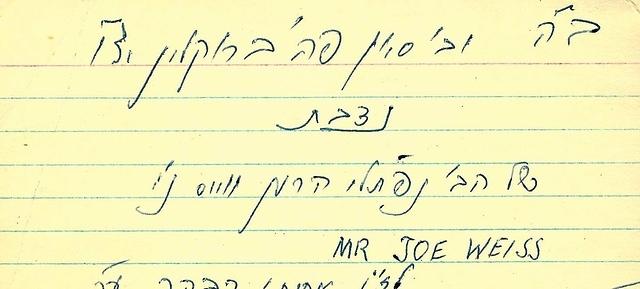 ב"ה וב' סיון פה ב' ברוקלין יצ"ו
נדבת
של הב' נפתלי הרמן ווייס ני"ו
MR JOE WEISS